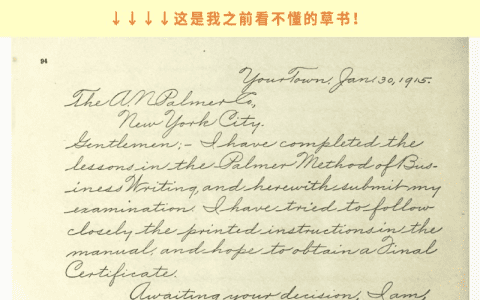 ↓↓↓↓这是我之前看不懂的草书!
94
Your Town, Jan. 30, 1915.
The A. N. Palmer Co.,
New York City.
Gentlemen:- I have completed the
lessons in the Palmer Method of Bus-
iness Writing, and herewith submit my
examination. I have tried to follow
closely the printed instructions in the
manual, and hope to obtain a Final
Certificate.
Awaiting your decision, I am,